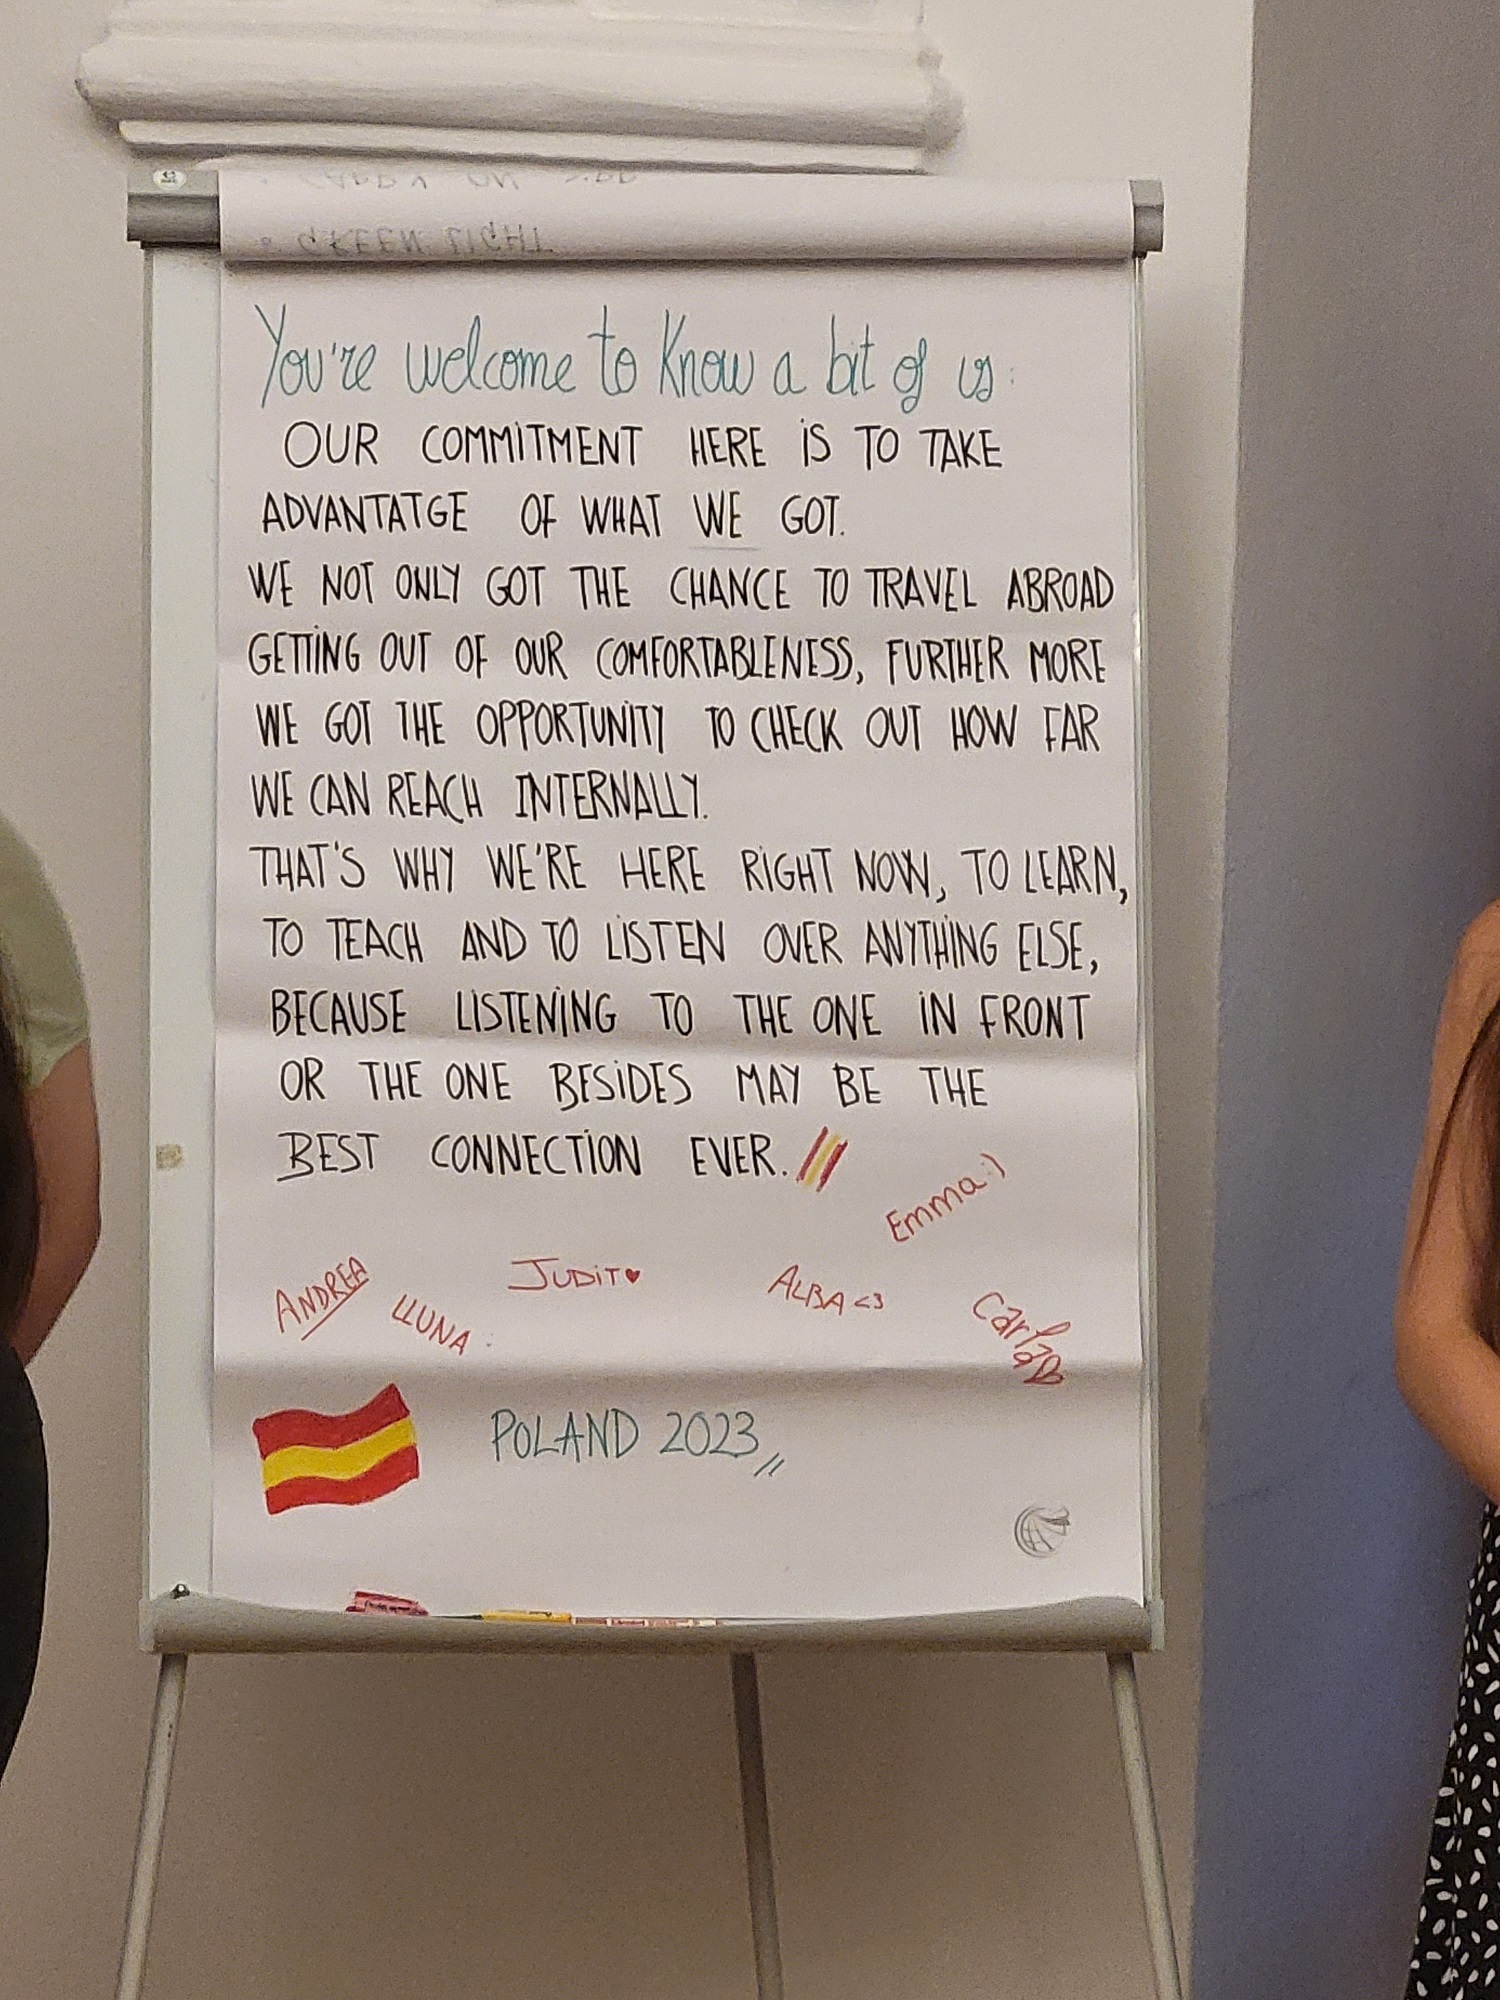 GREEN LIGHT
You're welcome to Know a bit of us:
OUR COMMITMENT HERE IS TO TAKE
ADVANTATGE OF WHAT WE GOT.
WE NOT ONLY GOT THE CHANCE TO TRAVEL ABROAD
GETTING OUT OF OUR COMFORTABLENESS, FURTHER MORE
WE GOT THE OPPORTUNITY TO CHECK OUT HOW FAR
WE CAN REACH INTERNALLY.
THAT'S WHY WE'RE HERE RIGHT NOW, TO LEARN,
TO TEACH AND TO LISTEN OVER ANYTHING ELSE,
BECAUSE LISTENING TO THE ONE IN FRONT
OR THE ONE BESIDES MAY BE THE
BEST CONNECTION EVER.
Emma :)
ANDREA
LLUNA
JUDIT♥
ALBA <3
POLAND 2023